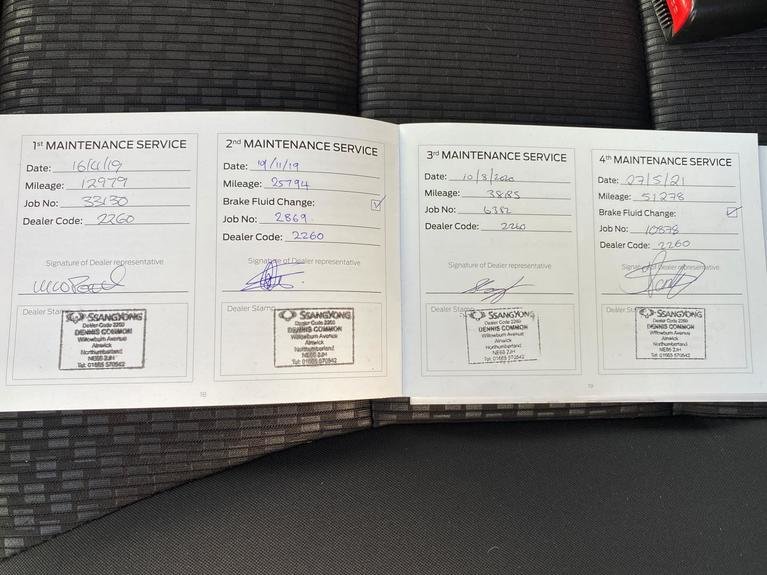 1st MAINTENANCE SERVICE
Date: 16/4/19
Mileage: 12979
Job No: 33130
Dealer Code: 2260
Signature of Dealer representative
Dealer Stamp
SSANGYONG
Dealer Code 2260
DENNIS COMMON
Willowburn Avenue
Alnwick
Northumberland
NE66 2JH
Tel: 01665 570542
18
2nd MAINTENANCE SERVICE
Date: 19/11/19
Mileage: 25794
Brake Fluid Change:
Job No: 2869.
Dealer Code: 2260
Signature of Dealer representative
Dealer Stamp
SSANGYONG
Dealer Code 2260
DENNIS COMMON
Willowburn Avenue
Alnwick
Northumberland
NE66 2JH
Tel: 01665 570542
3rd MAINTENANCE SERVICE
Date: 10/8/2020
Mileage: 3885
Job No: 6382
Dealer Code: 2260
Signature of Dealer representative
Dealer Stamp
SSANGYONG
Dealer Code 2260
DENNIS COMMON
Willowburn Avenue
Alnwick
Northumberland
NE66 2JH
Tel: 01665 570542
19
4th MAINTENANCE SERVICE
Date: 27/5/21
Mileage: 51278
Brake Fluid Change:
Job No: 10878
Dealer Code: 2260
Signature of Dealer representative
Dealer Stamp
SSANGYONG
Dealer Code 2260
DENNIS COMMON
Willowburn Avenue
Alnwick
Northumberland
NE66 2JH
Tel: 01665 570542